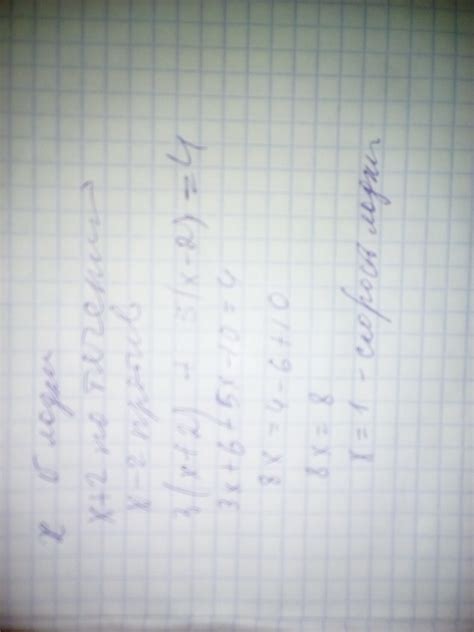 х V лодки
х+2 по течению
х-2 против
3(х+2) + 5(х-2) = 4
3х+6+5х-10=4
8х=4-6+10
8х=8
х=1 - скорость лодки